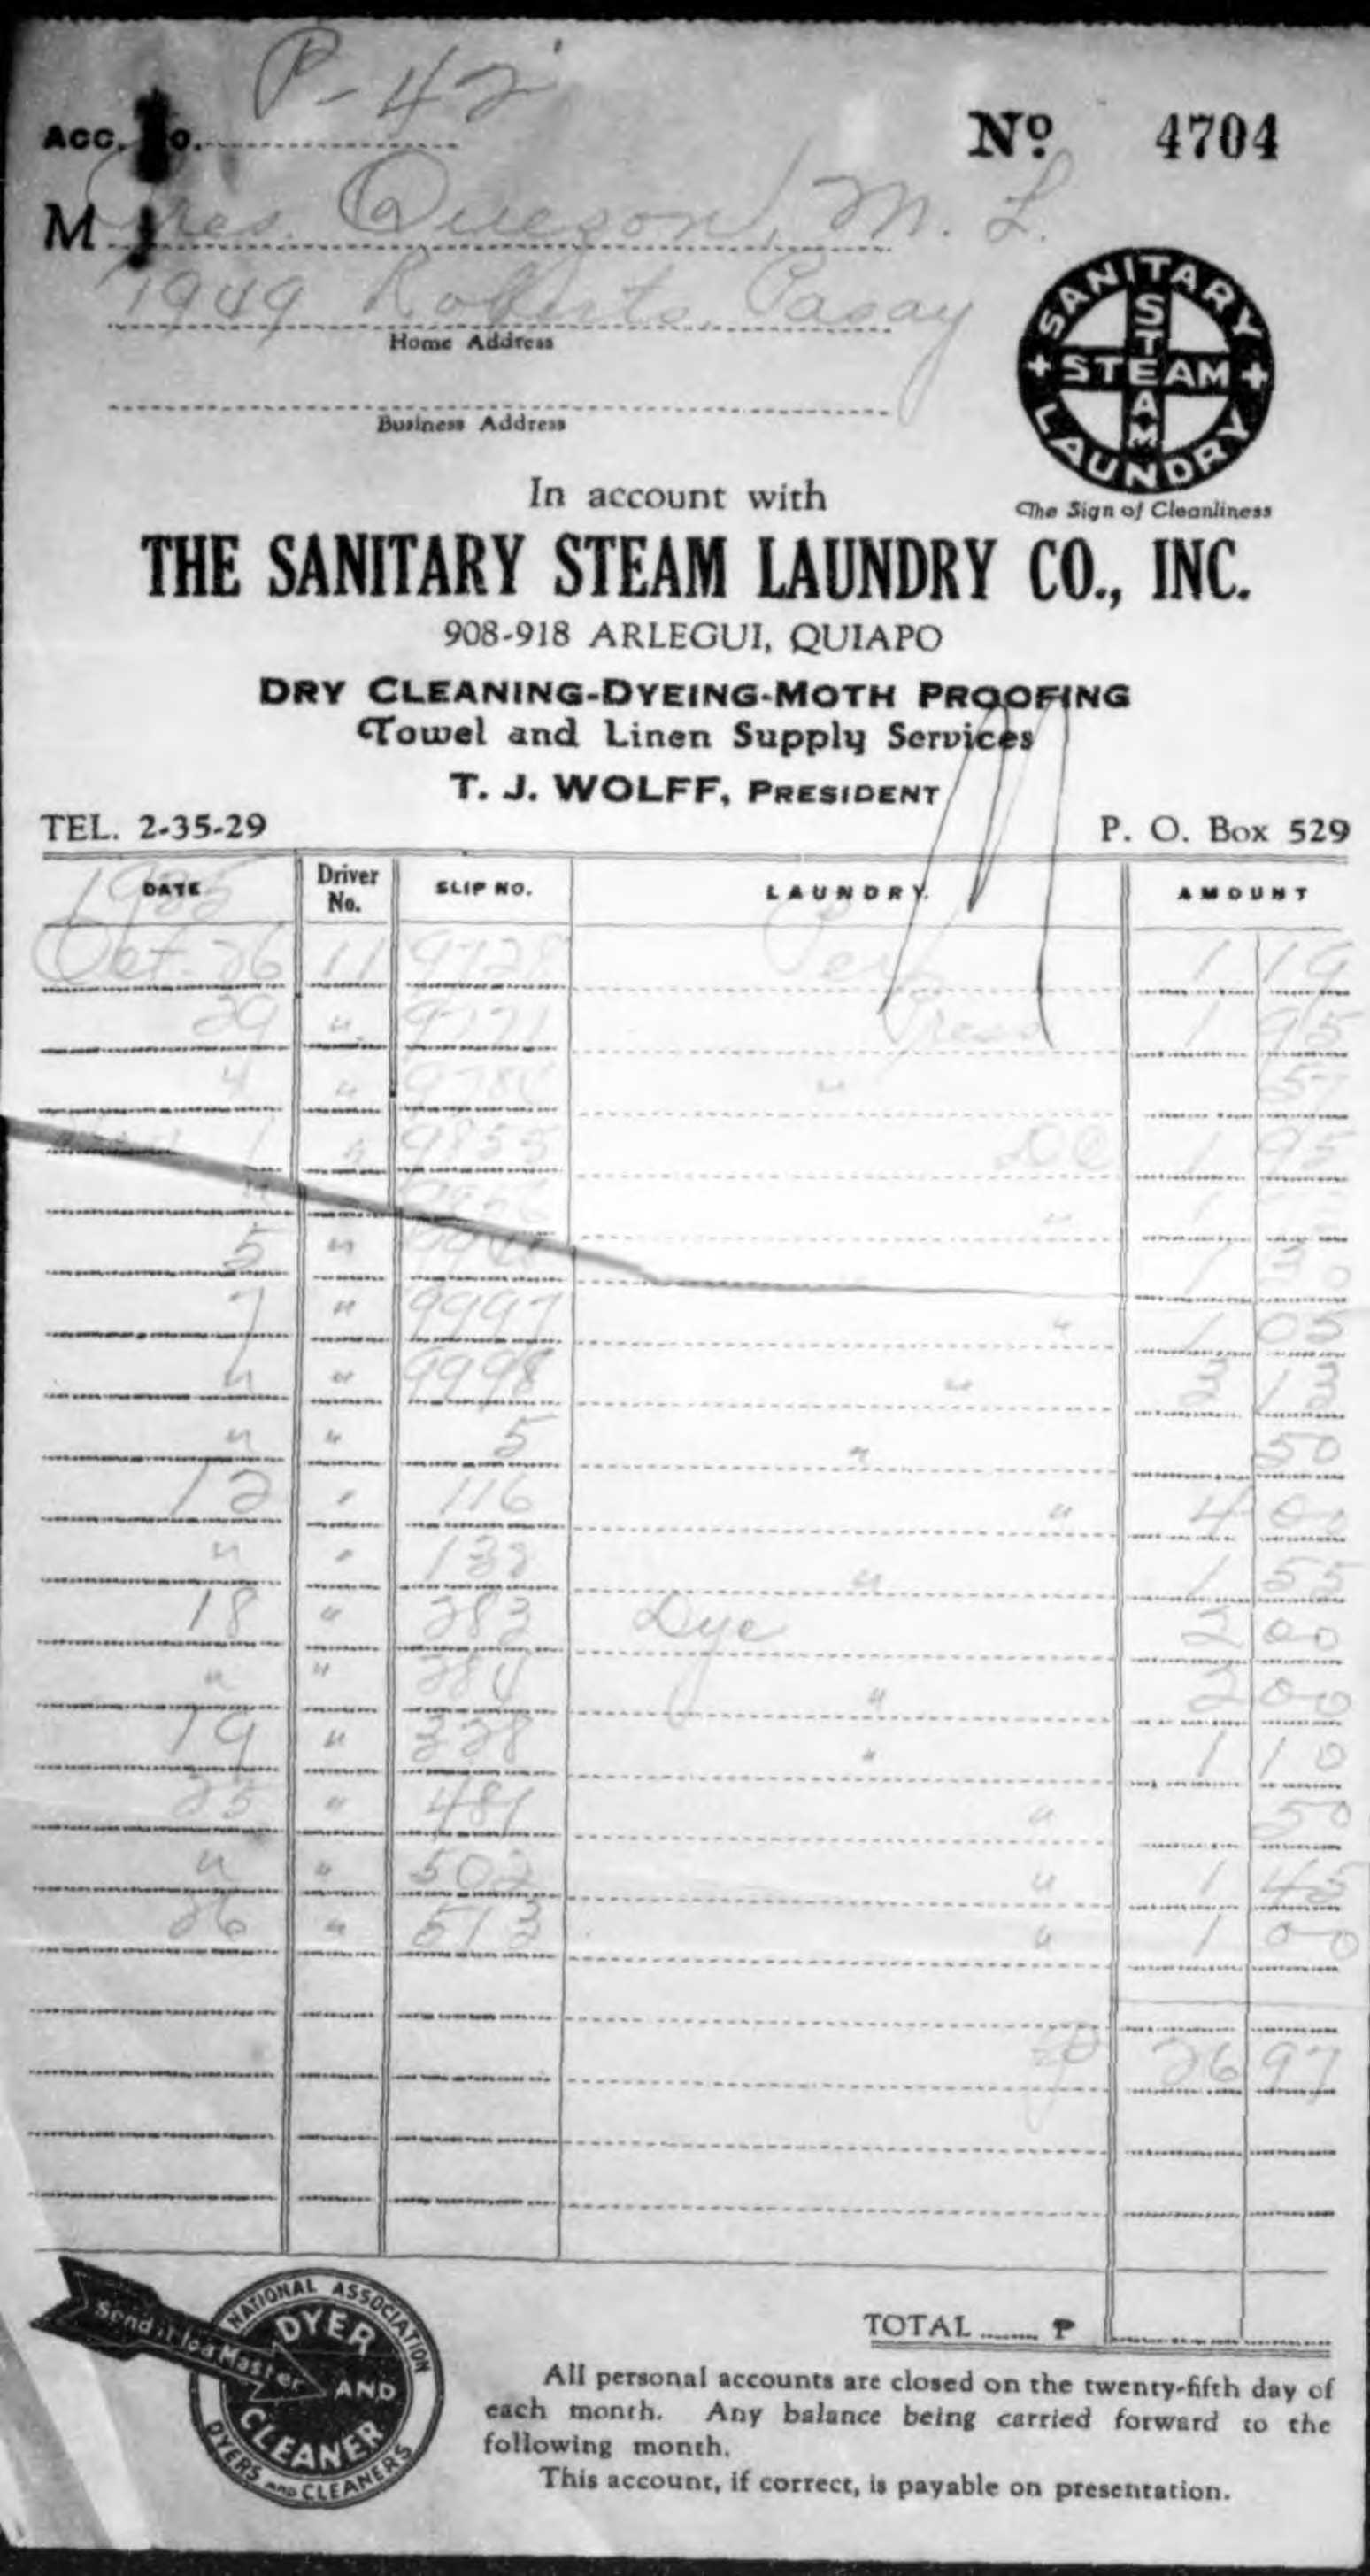 P-42
Acc. No.
Nº 4704
Mrs. Quezon, M. L.
1949 Roberts, Pasay
Home Address
Business Address
SANITARY STEAM LAUNDRY
STEAM
The Sign of Cleanliness
In account with
THE SANITARY STEAM LAUNDRY CO., INC.
908-918 ARLEGUI, QUIAPO
DRY CLEANING-DYEING-MOTH PROOFING
Towel and Linen Supply Services
T. J. WOLFF, PRESIDENT
TEL. 2-35-29 P. O. Box 529
DATE Driver No. SLIP NO. LAUNDRY. AMOUNT
1935
Oct. 26 11 9728 1 19
29 " 9771 Press 1 95
" " " 57
1 " 9855 DC 1 95
" " 1
5 " 1 30
7 " 9997 " 1 05
" " 9998 " 3 13
" " 5 " 50
12 " 116 " 4
" " 138 " 1 55
18 " 283 Dye 2 00
" " 284 " 2 00
19 " 328 " 1 10
25 " 481 " 50
" " 502 " 1 45
26 " 513 " 1 00
₱ 26 97
TOTAL ₱
NATIONAL ASSOCIATION
DYER AND CLEANER
DYERS and CLEANERS
Send it to a Master
All personal accounts are closed on the twenty-fifth day of
each month. Any balance being carried forward to the
following month.
This account, if correct, is payable on presentation.